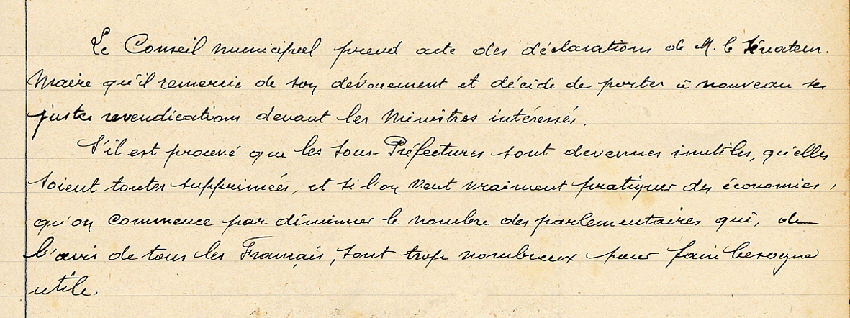 Le Conseil municipal prend acte des déclarations de M. le Sénateur-
Maire qu'il remercie de son dévouement et décide de porter à nouveau ses
justes revendications devant les Ministres intéressés.
S'il est prouvé que les Sous-Préfectures sont devenues inutiles, qu'elles
soient toutes supprimées, et si l'on veut vraiment pratiquer des économies,
qu'on commence par diminuer le nombre des parlementaires qui, de
l'avis de tous les Français, sont trop nombreux pour faire besogne
utile.